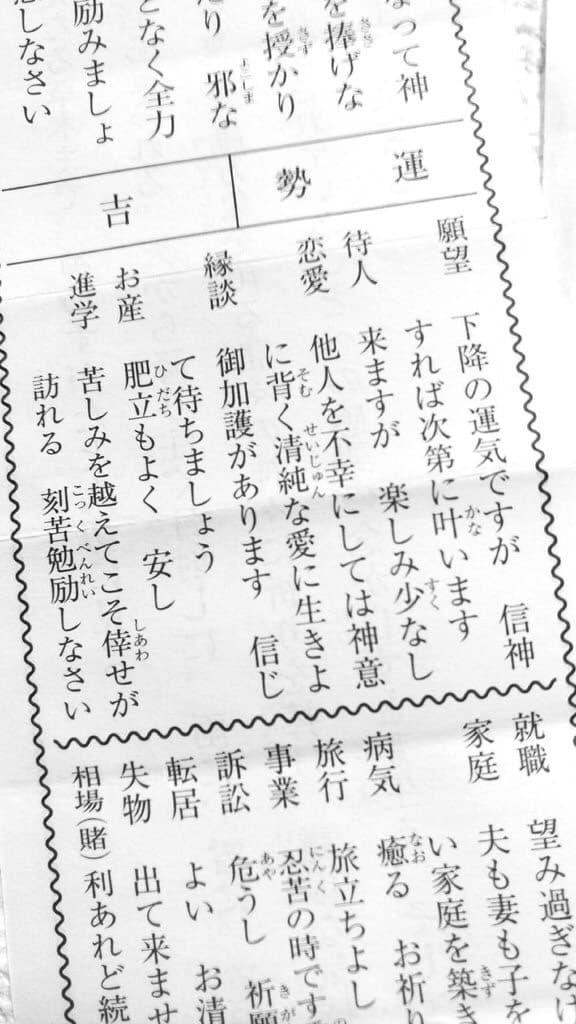 なって神
を捧げな
を授かり
たり　邪な
となく全力
励みましょ
しなさい
運勢
吉
願望　下降の運気ですが　信神
すれば次第に叶います
待人　来ますが　楽しみ少なし
恋愛　他人を不幸にしては神意
に背く清純な愛に生きよ
縁談　御加護があります　信じ
て待ちましょう
お産　肥立もよく　安し
進学　苦しみを越えてこそ倖せが
訪れる　刻苦勉励しなさい
就職　望み過ぎなけ
家庭　夫も妻も子を
い家庭を築き
病気　癒る　お祈り
旅行　旅立ちよし
事業　忍苦の時です
訴訟　危うし　祈願
転居　よい　お清
失物　出て来ませ
相場（賭）　利あれど続